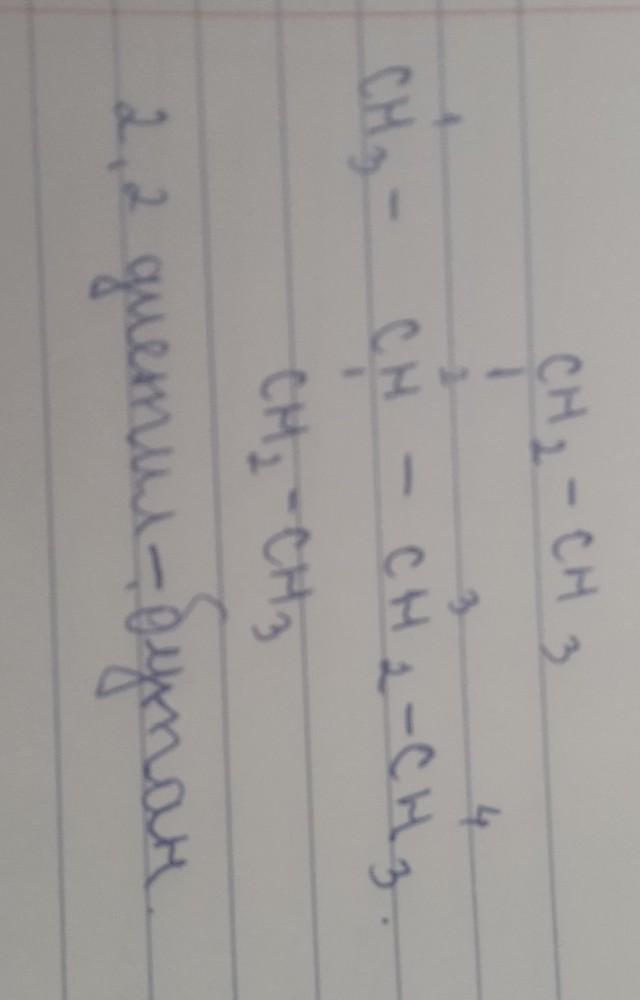 CH2-CH3
1 2| 3 4
CH3- CH - CH2-CH3.
|
CH2-CH3
2,2 диетил-бутан.